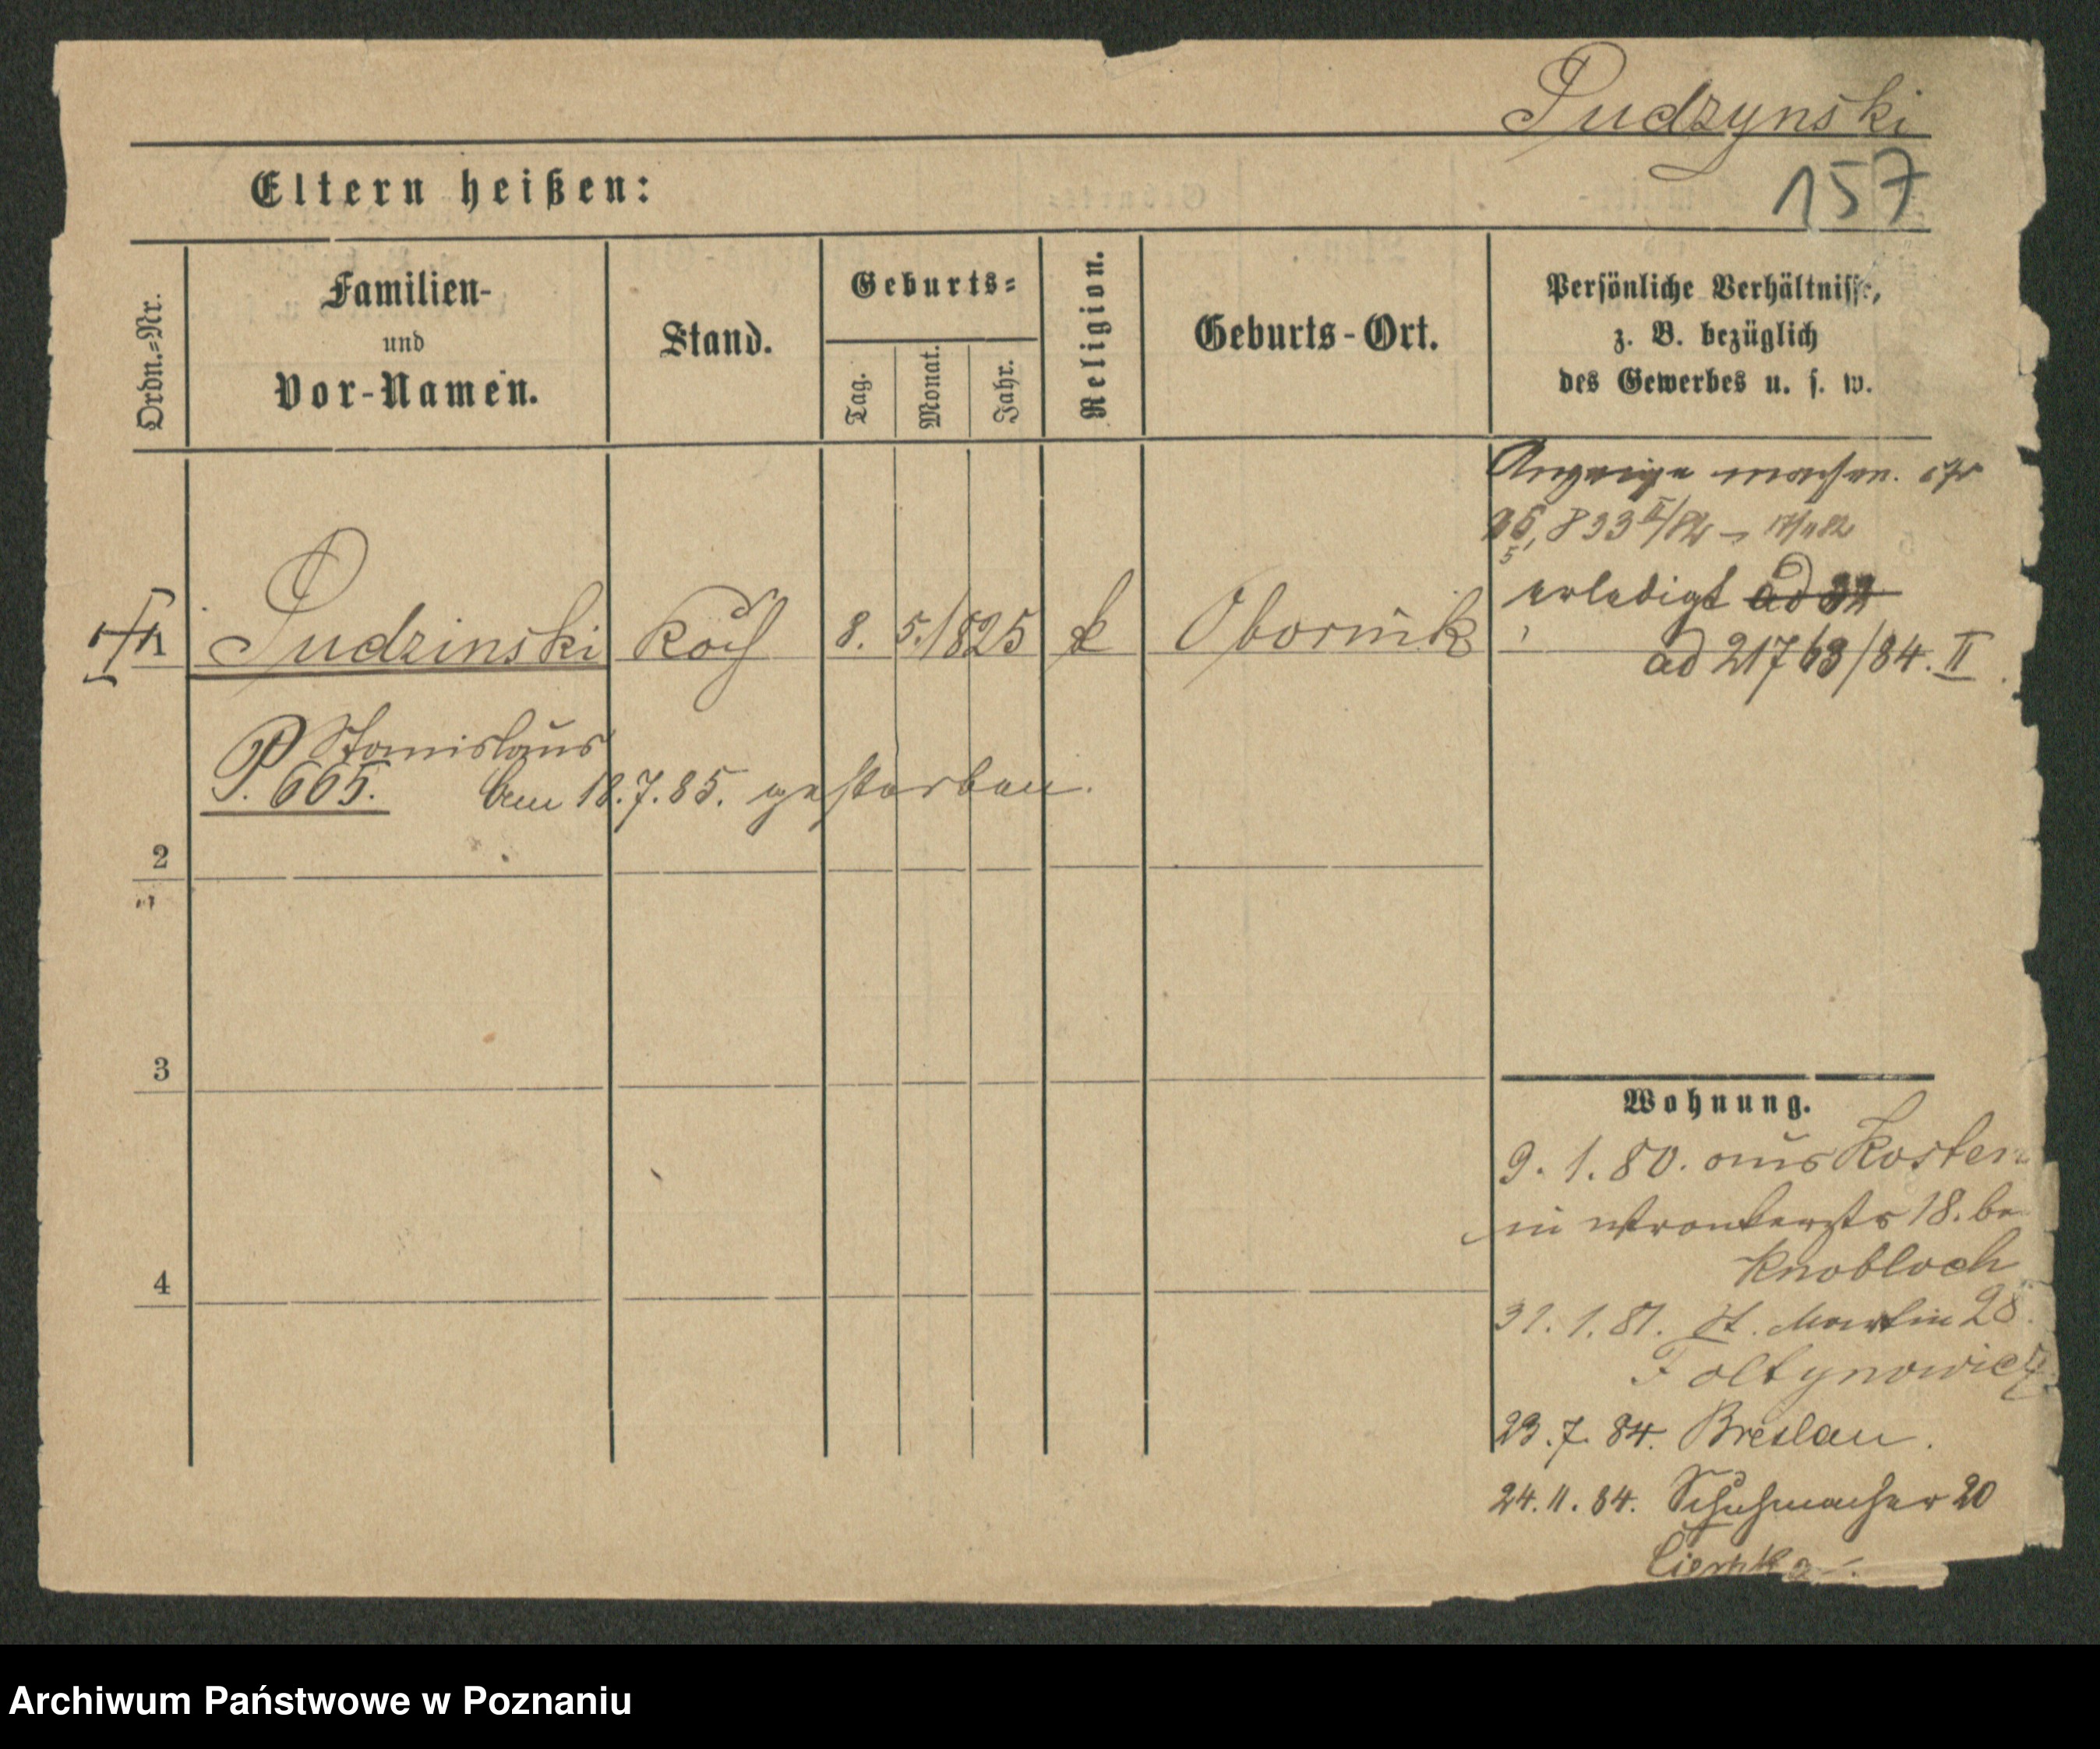 Pudzynski
157
Eltern heißen:
Ordn.=Nr.
Familien-
und
Vor-Namen.
Stand.
Geburts=
Tag.
Monat.
Jahr.
Religion.
Geburts-Ort.
Persönliche Verhältnisse,
z. B. bezüglich
des Gewerbes u. s. w.
Anzeige machen.
1 Pudzinski Koch 8. 5. 1825 k Obornik
erledigt ad
ad 21763/84. II
Stanislaus
P. 665. Am 18.7.85. gestorben.
2
3
4
Wohnung.
9. 1. 80. aus Kosten
in Wronkerstr 18. be
Knobloch
31. 1. 81. St. Martin 28.
Foltynowicz
23. 7. 84. Breslau.
24. 11. 84. Schuhmacher 20
Archiwum Państwowe w Poznaniu